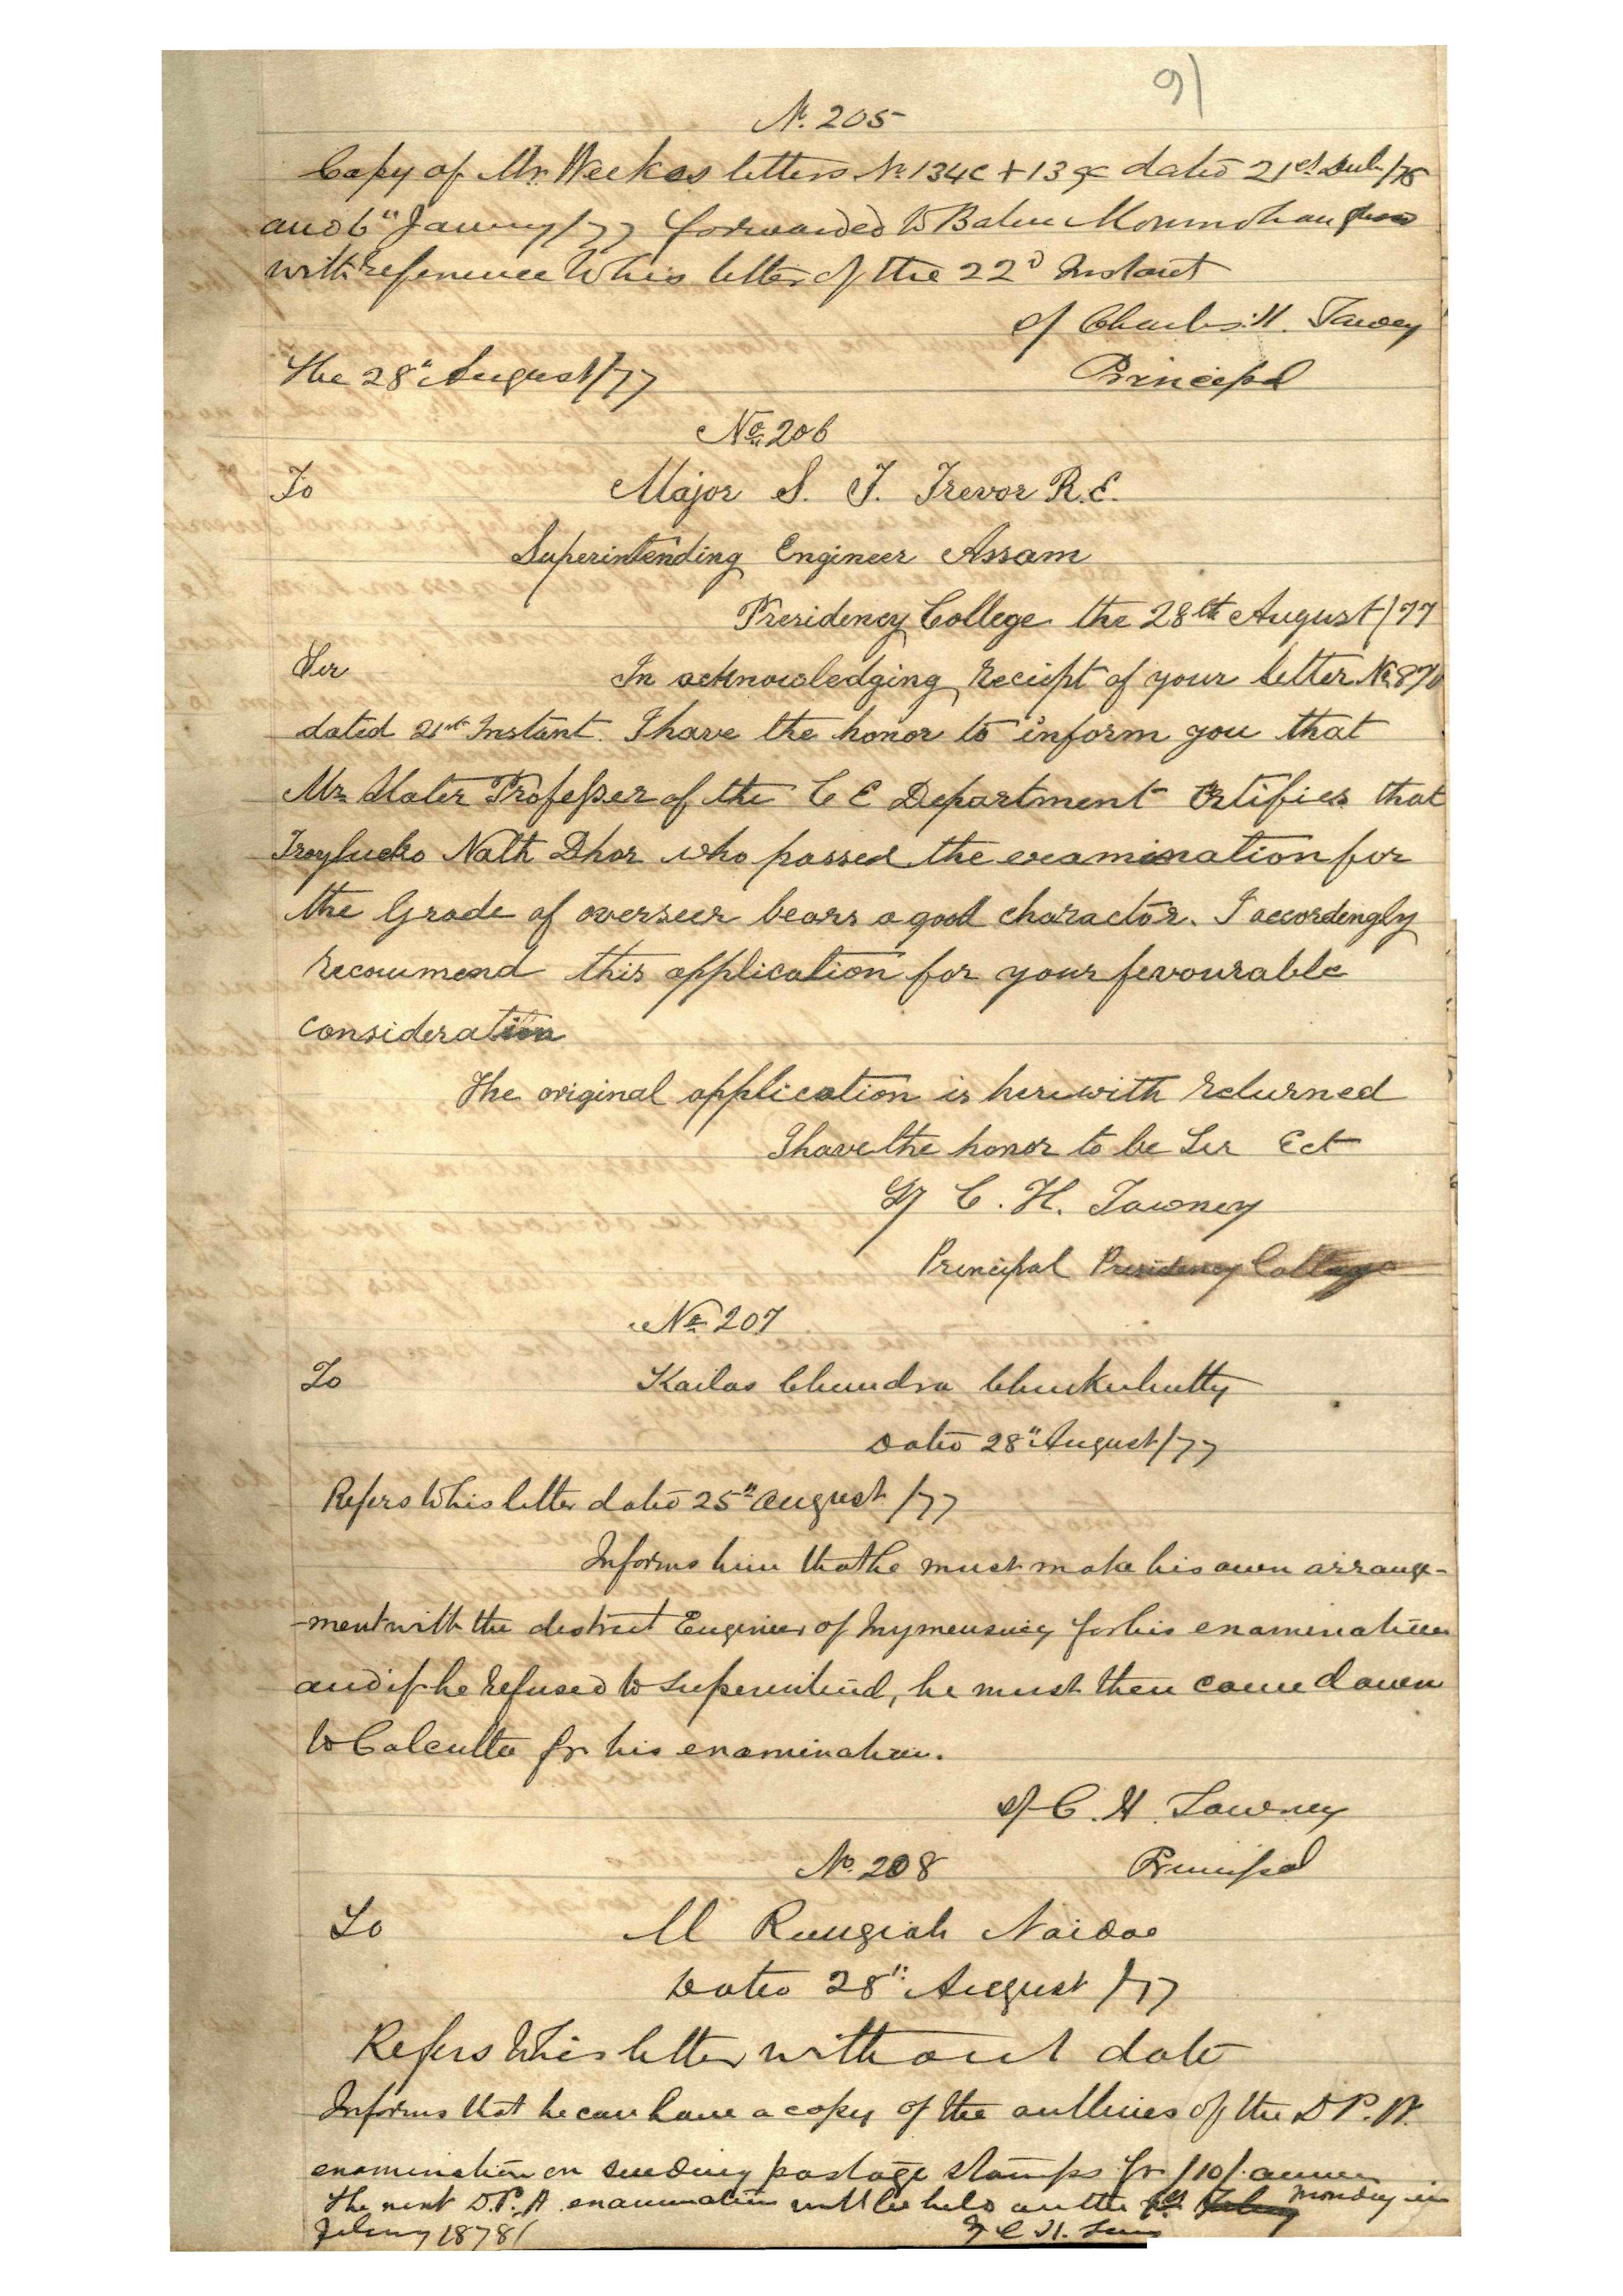 91
No. 205
Copy of Mr. Weekes letters No. 134c + 139c dated 21st Dub/76
and 6th January/77 forwarded to Babu Monmohan
with reference to his letter of the 22d Instant
Sf Charles H. Tawney
The 28th August/77 Principal
No. 206
To Major S. T. Trevor R.E.
Superintending Engineer Assam
Presidency College the 28th August/77
Sir In acknowledging reciept of your letter No 870
dated 21st Instant. I have the honor to inform you that
Mr. Slater Professer of the C E Department Certifies that
Troylucko Nath Dhor who passed the examination for
the Grade of overseer bears a good charactor. I accordingly
recommend this application for your favourable
consideration
The original application is herewith returned
I have the honor to be Sir Ect
Sf C. H. Tawney
Principal Presidency College
No. 207
To Kailas Chundra Chuckerbutty
Dated 28th August/77
Refers to his letter dated 25th August /77
Informs him that he must make his own arrange-
-ment with the district Engineer of Mymensing for his examination
and if he refused to superintend, he must then come down
to Calcutta for his examination.
Sf C. H. Tawney
No. 208 Principal
To M Rungiah Naidoo
Dated 28th August /77
Refers to his letter without date
Informs that he can have a copy of the outlines of the D P. W.
examination on sending postage stamps for /10/. annas
The next D.P.W. examination will be held on the 1st Monday in
February 1878/ Sf C H. Tawney